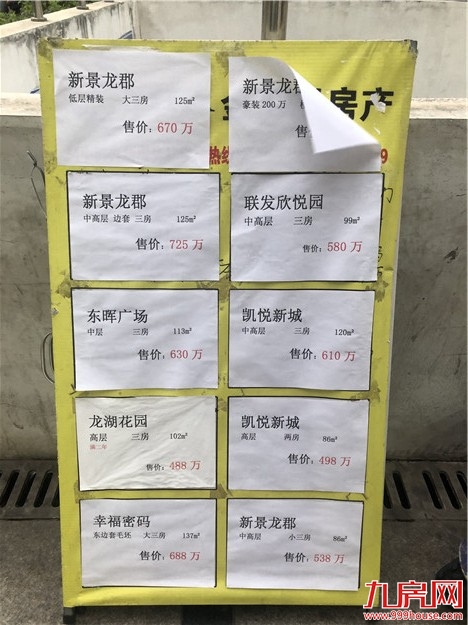 新景龙郡
低层精装 大三房 125m²
售价：670万
新景龙
豪装200万
房产
热线
9
新景龙郡
中高层 边套 三房 125m²
售价：725万
联发欣悦园
中高层 三房 99m²
售价：580万
东晖广场
中层 三房 113m²
售价：630万
凯悦新城
中高层 三房 120m²
售价：610万
龙湖花园
高层 三房 102m²
满二年
售价：488万
凯悦新城
高层 两房 86m²
售价：498万
幸福密码
东边套毛坯 大三房 137m²
售价：688万
新景龙郡
中高层 小三房 86m²
售价：538万
九房网
www.999house.com